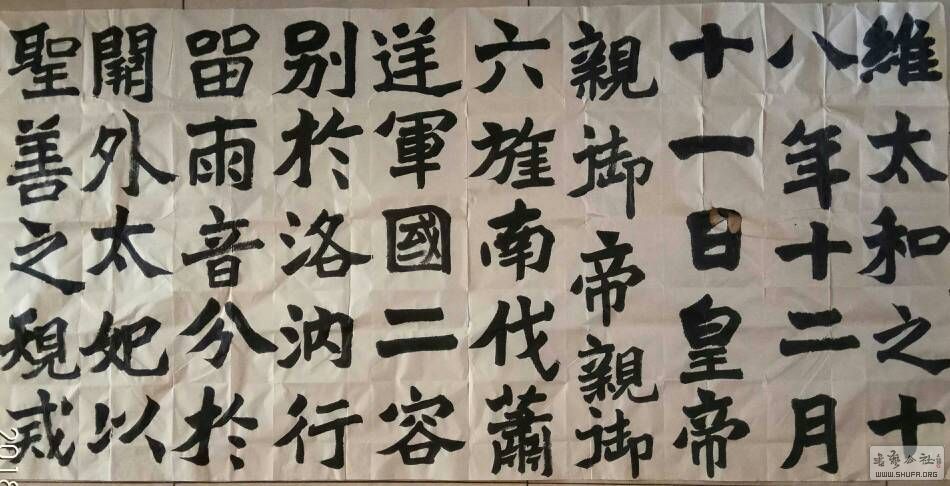 維太和之十
八年十二月
十一日皇帝
親御帝親御
六旌南伐蕭
逆軍國二容
别於洛汭行
留雨音分於
關外太妃以
聖善之規戒
2018
书艺公社
WWW.SHUFA.ORG